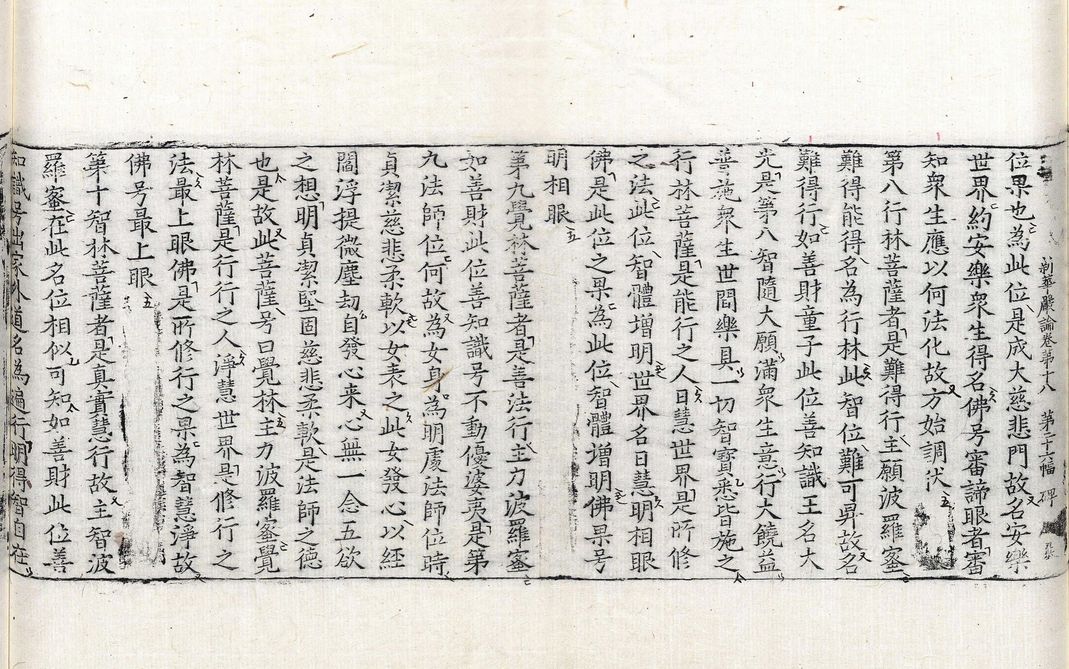 位果也為此位是成大慈悲門故名安樂
新華嚴論卷第十八 第十六幅 碑
世界約安樂衆生得名佛号審諦眼者審
知衆生應以何法化故方始調伏
第八行林菩薩者是難得行主願波羅蜜
難得能得名為行林此智位難可昇故名
難得行如善財童子此位善知識王名大
光是第八智隨大願滿衆生意行大饒益
普施衆生世間樂具一切智寶悉皆施之
行林菩薩是能行之人日慧世界是所修
之法此位智體增明世界名日慧明相眼
佛是此位之果為此位智體增明佛果号
明相眼
第九覺林菩薩者是善法行主力波羅蜜
如善財此位善知識号不動優婆夷是第
九法師位何故為女身為明處法師位時
貞潔慈悲柔軟以女表之此女發心以經
閻浮提微塵劫自發心来心無一念五欲
之想明貞潔堅固慈悲柔軟是法師之德
也是故此菩薩号曰覺林主力波羅蜜覺
林菩薩是行行之人淨慧世界是修行之
法最上眼佛是所修行之果為智慧淨故
佛号最上眼
第十智林菩薩者是真實慧行故主智波
羅蜜在此名位相似可知如善財此位善
知識号出家外道名為遍行明得智自在